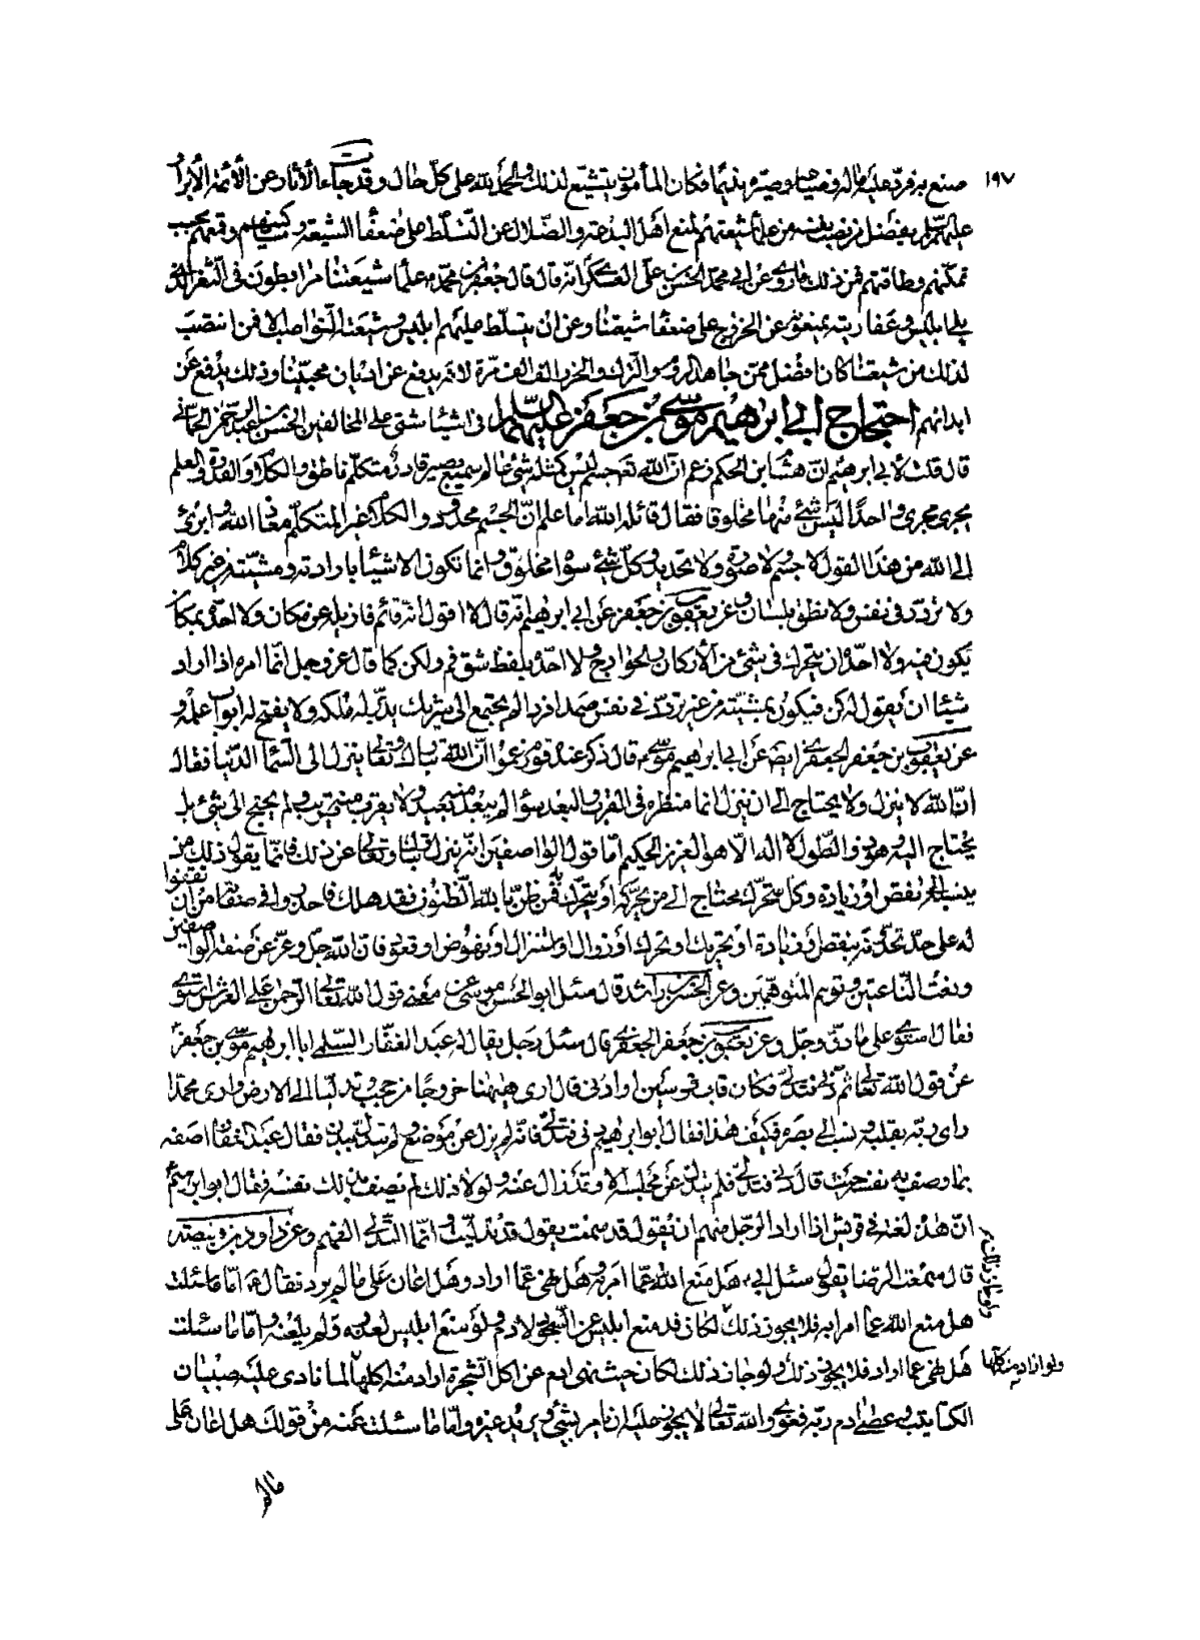 ١٩٧
صنع به فرد عليه ماله وضياعه وصيره نديما فكان المأمون يتشيع لذلك والحمد لله على كل حال وقد جاءت الآثار عن الأئمة الأبرار
عليهم السلم بفضل من نصب نفسه من علماء شيعتهم لمنع أهل البدعة والضلال عن التسلط على ضعفاء الشيعة ومساكينهم وقمعهم بحسب
تمكنهم وطاقتهم فمن ذلك ما روى عن ابي محمد الحسن بن علي العسكري انه قال قال جعفر بن محمد ع علماء شيعتنا مرابطون في الثغر الذي
يلي ابليس وعفاريته يمنعونهم عن الخروج على ضعفاء شيعتنا وعن ان يتسلط عليهم ابليس وشيعته النواصب الا فمن انتصب
لذلك من شيعتنا كان افضل ممن جاهد الروم والترك والخزر الف الف مرة لانه يدفع عن اديان محبينا وذلك يدفع عن
ابدانهم احتجاج ابي ابرهيم موسى بن جعفر عليهما السلم في اشياء شتى على المخالفين الحسن بن عبد الرحمن الحماني
قال قلت لابي ابرهيم ان هشام ابن الحكم زعم ان الله تعـ جسم ليس كمثله شيء عالم سميع بصير قادر متكلم ناطق والكلام والقدرة والعلم
يجرى مجرى واحدا ليس شيء منها مخلوقا فقال قاتله الله اما علم ان الجسم محدود والكلام غير المتكلم معاذ الله وابرئ
الى الله من هذا القول لا جسم ولا صورة ولا تحديد وكل شيء سواه مخلوق وانما تكون الاشياء بارادته ومشيته من غير كلام
ولا تردد في نفس ولا نطق بلسان وعن يعقوب بن جعفر عن ابي ابرهيم انه قال لا اقول انه قائم فازيله عن مكان ولا احده بمكان
يكون فيه ولا احده ان يتحرك في شيء من الأركان والجوارح ولا احده بلفظ شق فم ولكن كما قال عز وجل انما امره اذا اراد
شيئا ان يقول له كن فيكون بمشيته من غير تردد في نفس صمدا فردا لم يحتج الى شريك يدبر له ملكه ولا يفتح له ابواب علمه و
عن يعقوب بن جعفر الجعفري ايضا عن ابي ابرهيم موسى ع قال ذكر عنده قوم زعموا ان الله تبارك وتعالى ينزل الى السماء الدنيا فقال
ان الله لا ينزل ولا يحتاج الى ان ينزل انما منظره في القرب والبعد سواء لم يبعد منه بعيد ولا يقرب منه قريب ولم يحتج الى شيء بل
يحتاج اليه وهو ذو الطول لا اله الا هو العزيز الحكيم اما قول الواصفين انه ينزل تبارك وتعالى عن ذلك فانما يقول ذلك من
ينسبه الى نقص او زيادة وكل متحرك محتاج الى من يحركه او يتحرك به فمن ظن بالله الظنون فقد هلك فاحذروا في صفاته من ان تقفوا
له على حد تحدونه بنقص او زيادة او تحريك او تحرك او زوال او استنزال او نهوض او قعود فان الله جل وعز عن صفة الواصفين
ونعت الناعتين وتوهم المتوهمين وعن الحسن بن راشد قال سئل ابو الحسن موسى ع عن معنى قول الله تعالى الرحمن على العرش استوى
فقال استولى على ما دق وجل وعن يعقوب بن جعفر الجعفري قال سئل رجل يقال له عبد الغفار السلمى ابا ابرهيم موسى بن جعفر ع
عن قول الله تعالى ثم دنى فتدلى فكان قاب قوسين او ادنى قال ارى ههنا خروجا من حجب وتدليا الى الارض وارى محمدا
راى ربه بقلبه ونسب الى بصره فكيف هذا فقال ابو ابرهيم دنى فتدلى فانه لم يزل عن موضع ولم يتدل ببدن فقال عبد الغفار اصفه
بما وصف به نفسه حيث قال دنى فتدلى فلم يتدل عن مجلسه الا وقد زال عنه ولولا ذلك لم يصف بذلك نفسه فقال ابو ابرهيم
ان هذه لغة في قريش اذا اراد الرجل منهم ان يقول قد سمعت يقول قد تدليت وانما التدلي الفهم وعن داود بن قبيصة
قال سمعت الرضا يقول سئل ابي ع هل منع الله عما امر به وهل نهى عما اراد وهل اعان على ما لم يرد فقال ع اما ما سئلت
هل منع الله عما امر به فلا يجوز ذلك لكان قد منع ابليس عن السجود لادم ولو منع ابليس لعذره ولم يلعنه واما ما سئلت
هل نهى عما اراد فلا يجوز ذلك ولو جاز ذلك لكان حيث نهى ادم عن اكل الشجرة اراد منه اكلها لما نادى عليه صبيان
الكتاتيب وعصى ادم ربه فغوى والله تعالى لا يجوز عليه ان يامر بشيء ويريد غيره واما ما سئلت عنه من قولك هل اعان على
ولو جاز ذلك
ولو اراد منه اكلها
مالم